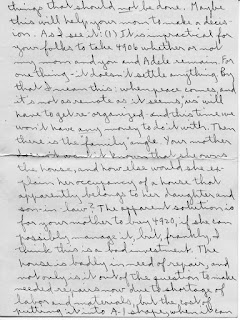 things that should not be done. Maybe
this will help your mom to make a decis-
ion. As I see it: (1) It is impractical for
your folks to take 4906 whether or not
my mom and you and Adele remain. For
one thing - it doesn't settle anything. By
that I mean this: when peace comes, and
it's not as remote as it seems, we will
have to get re-organized - and this time we
won't have any money to do it with. Then
there is the family angle. Your mother
it known that she owns
the house, and how else would she ex-
plain her occupancy of a house that
apparently belongs to her daughter and
son-in-law? The apparent solution is
for your mother to buy 4920, if she can
possibly manage it, but, frankly, I
think this is a bad investment. The
house is badly in need of repair, and
not only is it out of the question to make
needed repairs now due to shortage of
labor and materials, but the cost of
putting it into A-1 shape, when it can